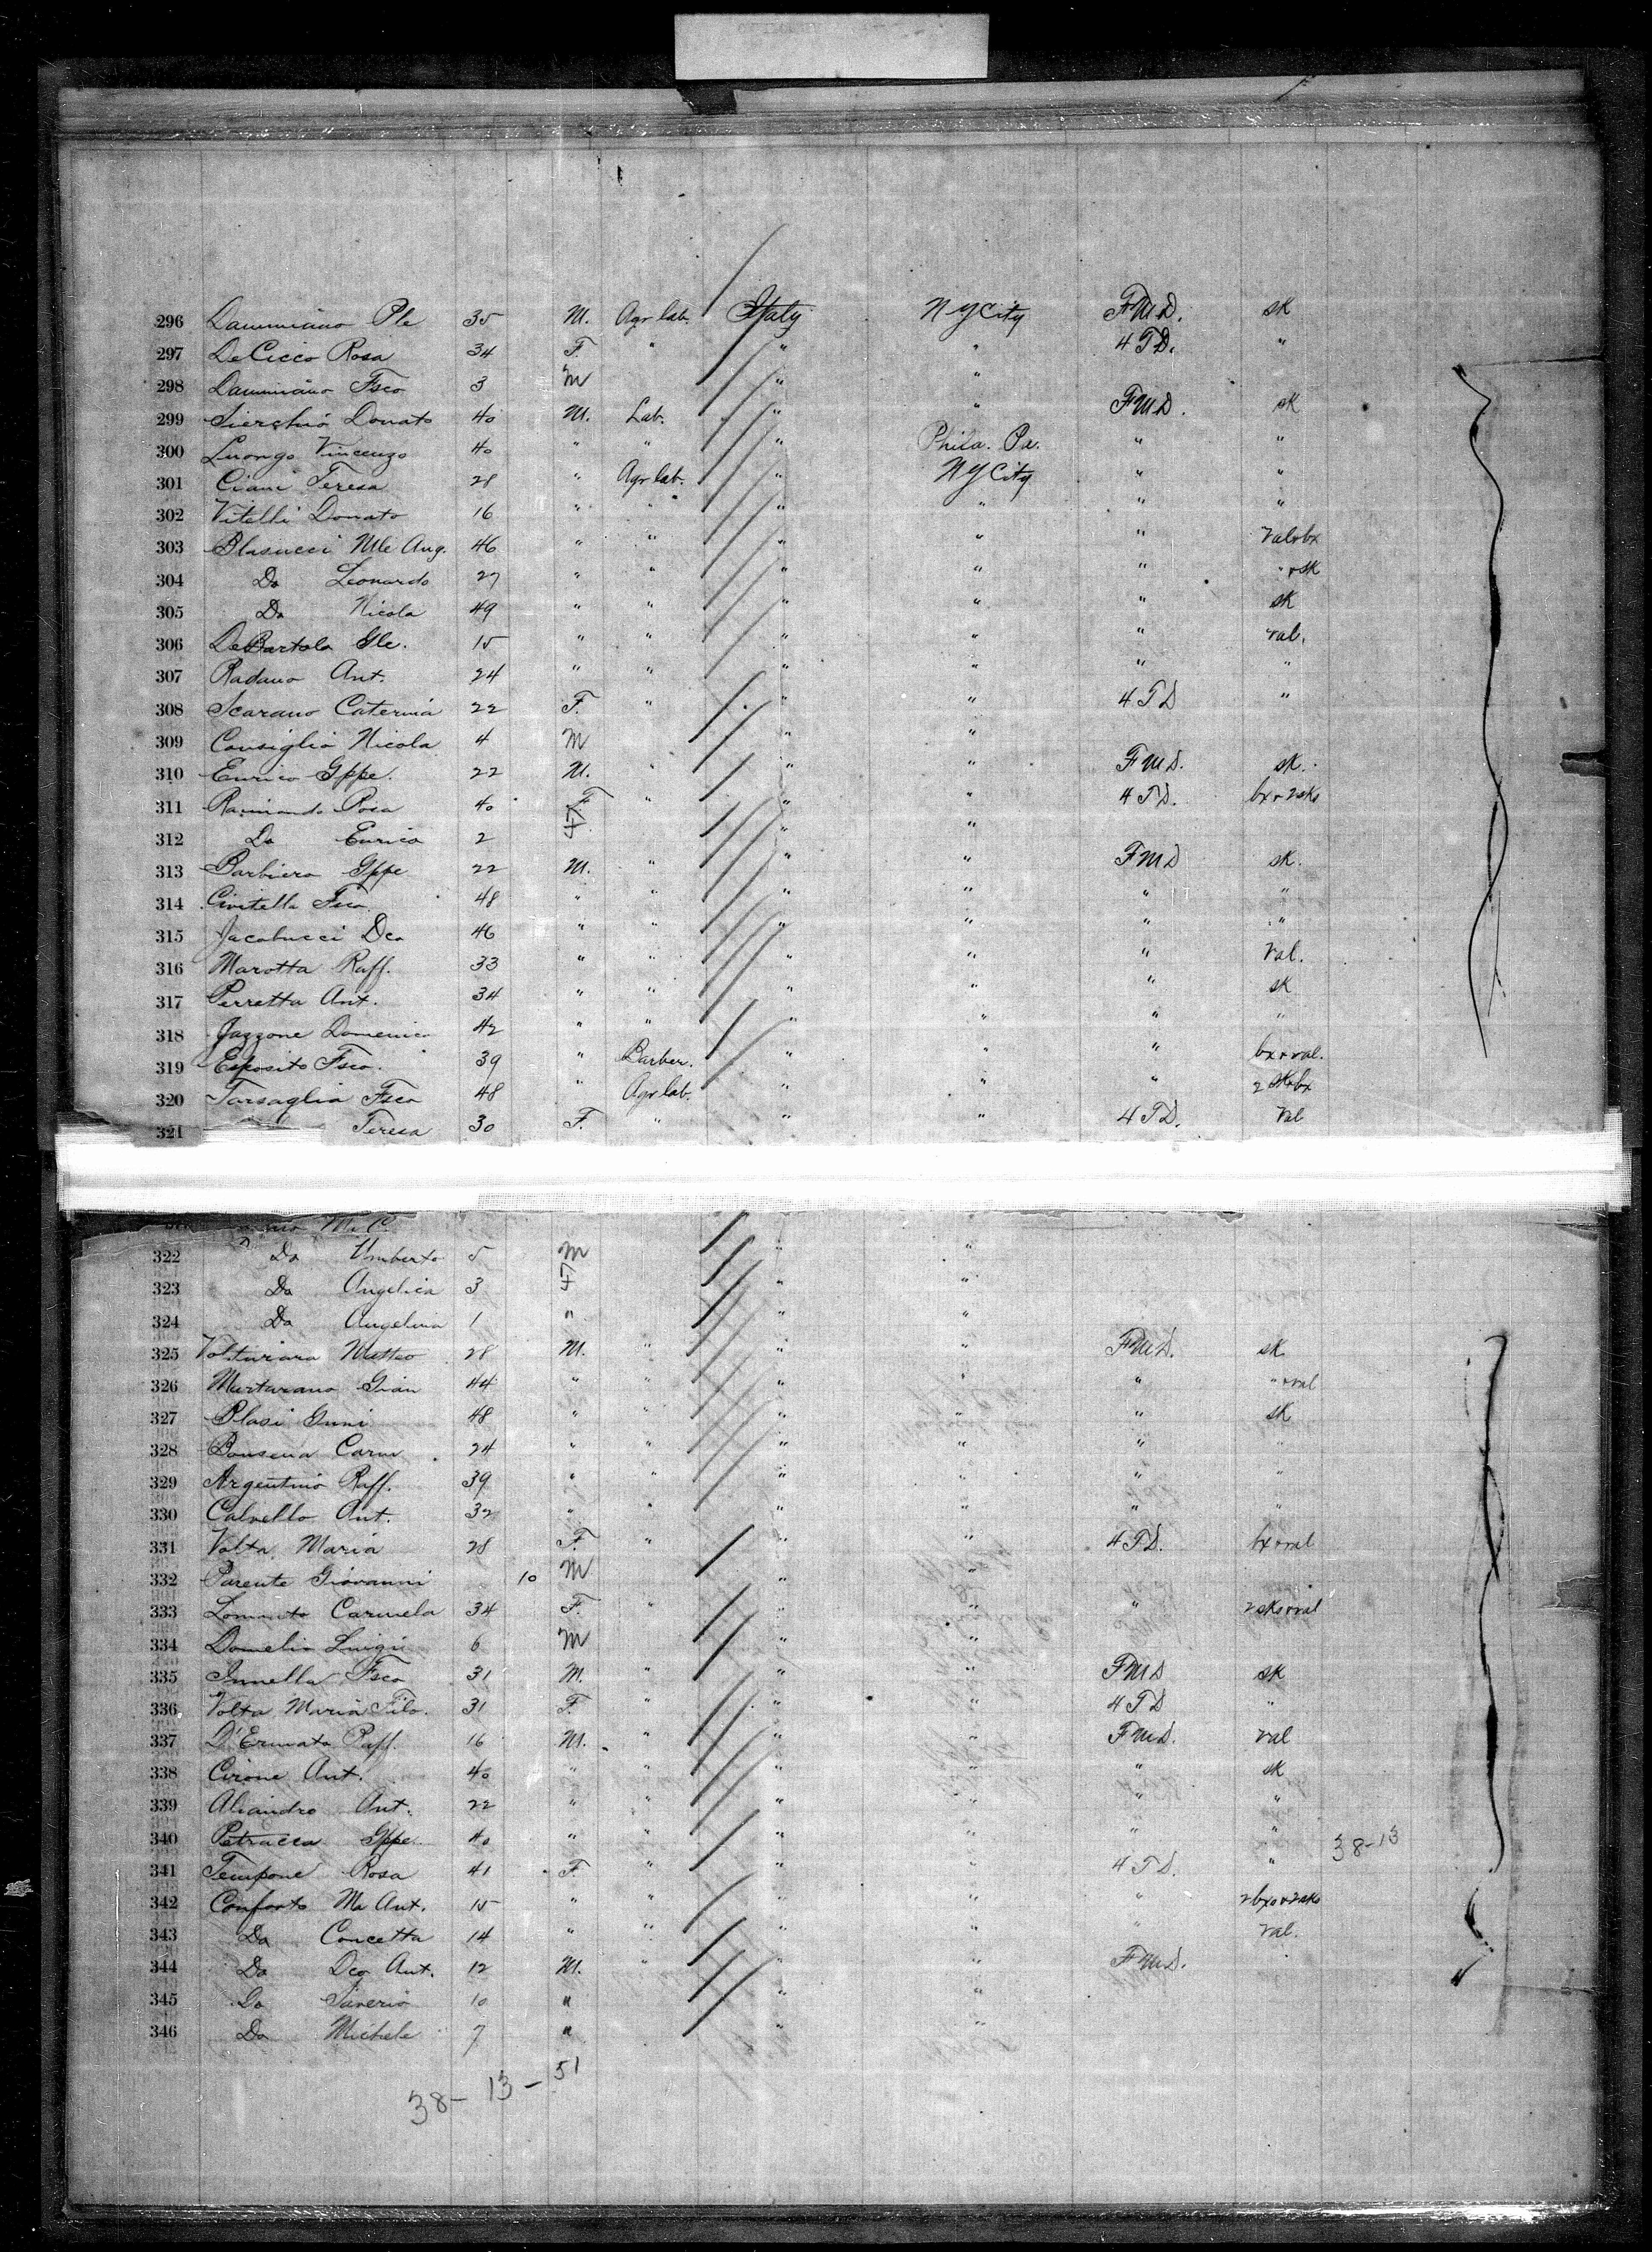 296 Dammiano Ple 35 M. Agr lab. Italy N Y City F M D. sk
297 De Cicco Rosa 34 F. " " " 4 T D. "
298 Dammiano Fsco 3 M " "
299 Donato 40 M. Lab. " " F M D. sk
300 Luongo Vincenzo 40 " " " Phila. Pa. " "
301 Ciani Teresa 28 " Agr lab. " N Y City " "
302 Vitelli Donato 16 " " " " " "
303 Blasucci Mle Ang. 46 " " " " " val & bx
304 Do Leonardo 27 " " " " " " & sk
305 Do Nicola 49 " " " " " sk
306 De Bartolo Gle. 15 " " " " " val.
307 Radano Ant. 24 " " " " " "
308 Scarano Caterina 22 F. " " " 4 T D "
309 Consiglio Nicola 4 M " "
310 Enrico Gppe. 22 M. " " " F M D. sk.
311 Raimondo Rosa 40 F " " " 4 T D. bx & 2 sks
312 Do Enrica 2 F " "
313 Barbiero Gppe 22 M. " " " F M D sk.
314 Civitella Fsco 48 " " " " " "
315 Jacobucci Dco 46 " " " " " "
316 Marotta Raff. 33 " " " " " Val.
317 Perretta Ant. 34 " " " " " sk
318 Jazzone Domenico 42 " " " " " "
319 Esposito Fsco. 39 " Barber. " " " bx & val.
320 Tarsaglia Fsco 48 " Agr lab. " " " 2 sk & bx
321 Teresa 30 F. " " " 4 T D. Val
M. C.
322 Do Umberto 5 M " "
323 Do Angelica 3 F " "
324 Do Angelina 1 " " "
325 Volturara Matteo 28 M. " " " F M D. sk
326 Martarano Gian 44 " " " " " " & val
327 Blasi Gnni 48 " " " " " sk
328 Carm 24 " " " " " "
329 Argentino Raff. 39 " " " " " "
330 Calvello Ant. 32 " " " " " "
331 Volta Maria 28 F. " " " 4 T D. bx & val
332 Parente Giovanni 10 M " "
333 Carmela 34 F. " " " " 2 sks & val
334 Luigi 6 M " "
335 Innella Fsco 31 M. " " " F M D sk
336 Volta Maria Filo. 31 F. " " " 4 T D "
337 D'Ermato Raff. 16 M. " " " F M D. val
338 Cirone Ant. 40 " " " " " sk
339 Aliandro Ant. 22 " " " " " "
340 Petracca Gppe. 40 " " " " " " 38-13
341 Tempone Rosa 41 F. " " " 4 T D. "
342 Conforto Ma Ant. 15 " " " " " 2 bxs & 2 sks
343 Do Concetta 14 " " " " " Val.
344 Do Dco Ant. 12 M. " " " F M D.
345 Do Saverio 10 " " "
346 Do Michele 7 " " "
38-13-51